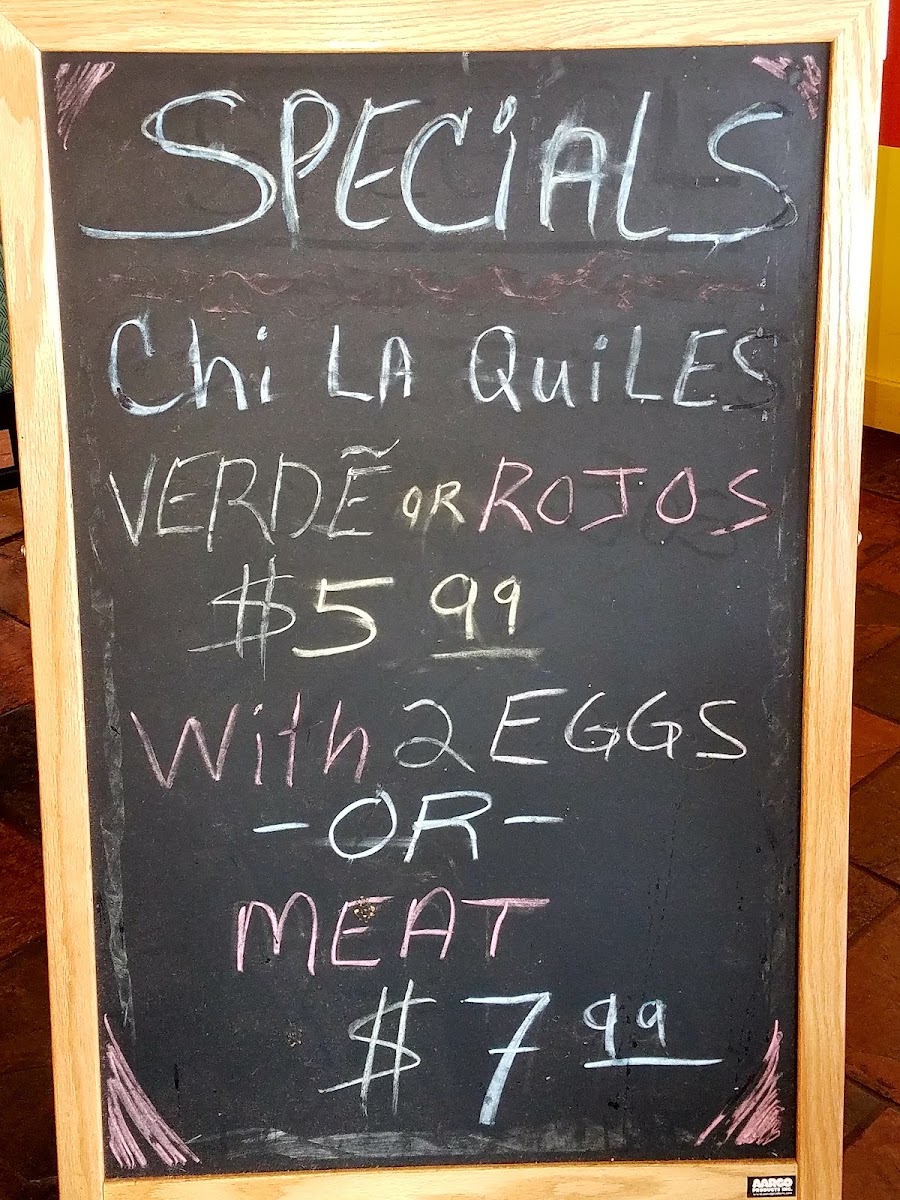 SPECiALS
Chi LA QuiLES
VERDẼ OR ROJOS
$5 99
With 2 EGGS
-OR-
MEAT
$7 99
AARCO
PRODUCTS INC.